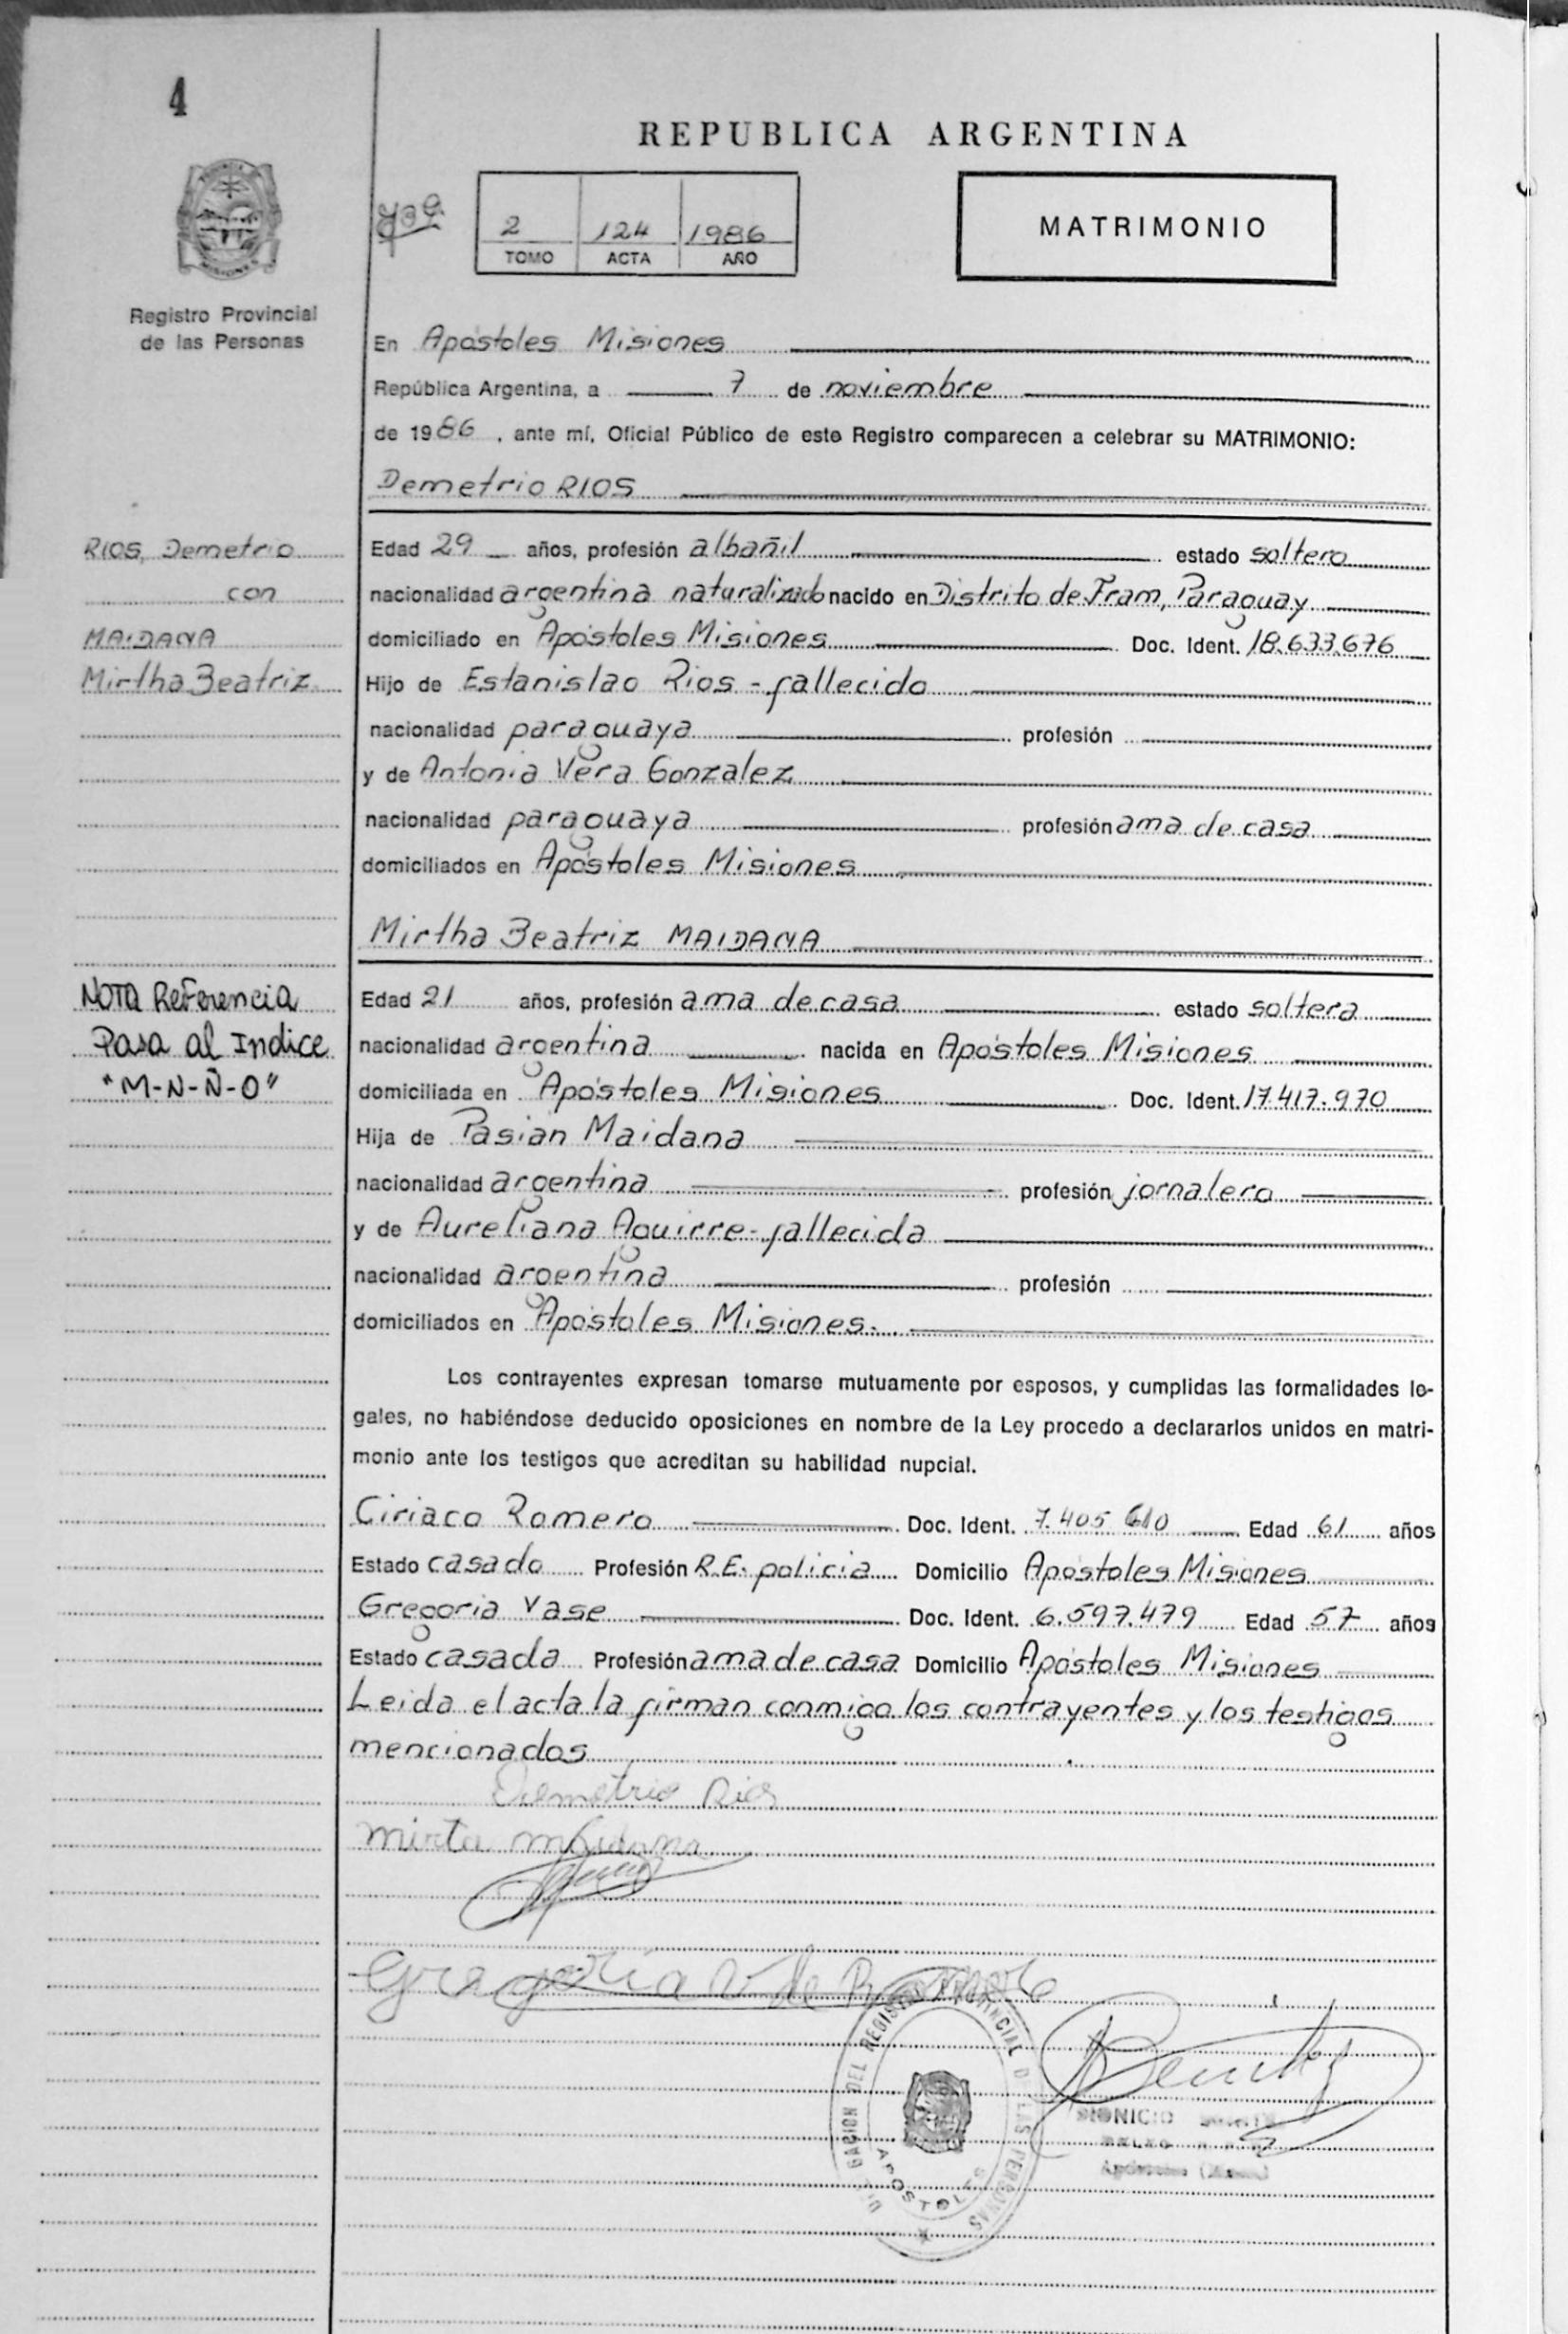 4
REPUBLICA ARGENTINA
MISIONES
2 124 1986
TOMO ACTA AÑO
MATRIMONIO
Registro Provincial
de las Personas
En Apóstoles Misiones
República Argentina, a 7 de noviembre
de 1986, ante mí, Oficial Público de este Registro comparecen a celebrar su MATRIMONIO:
Demetrio RIOS
RIOS, Demetrio
con
MAIDANA
Mirtha Beatriz
Edad 29 años, profesión albañil estado soltero
nacionalidad argentina naturalizado nacido en Distrito de Fram, Paraguay
domiciliado en Apóstoles Misiones Doc. Ident. 18.633.676
Hijo de Estanislao Rios - fallecido
nacionalidad paraguaya profesión
y de Antonia Vera Gonzalez
nacionalidad paraguaya profesión ama de casa
domiciliados en Apóstoles Misiones
Mirtha Beatriz MAIDANA
NOTA Referencia
Pasa al Indice
"M-N-Ñ-O"
Edad 21 años, profesión ama de casa estado soltera
nacionalidad argentina nacida en Apóstoles Misiones
domiciliada en Apóstoles Misiones Doc. Ident. 17.417.970
Hija de Pasian Maidana
nacionalidad argentina profesión jornalero
y de Aureliana Aguirre - fallecida
nacionalidad argentina profesión
domiciliados en Apóstoles Misiones.
Los contrayentes expresan tomarse mutuamente por esposos, y cumplidas las formalidades le-
gales, no habiéndose deducido oposiciones en nombre de la Ley procedo a declararlos unidos en matri-
monio ante los testigos que acreditan su habilidad nupcial.
Ciriaco Romero Doc. Ident. 7.405 610 Edad 61 años
Estado casado Profesión R.E. policia Domicilio Apóstoles Misiones
Gregoria Vase Doc. Ident. 6.597.479 Edad 57 años
Estado casada Profesión ama de casa Domicilio Apóstoles Misiones
Leida el acta la firman conmigo los contrayentes y los testigos
mencionados
Demetrio Rios
mirta maidana
Gregoria V de Romero
DELEGACION DEL REGISTRO PROVINCIAL DE LAS PERSONAS
APOSTOLES
DIONICIO
Apóstoles